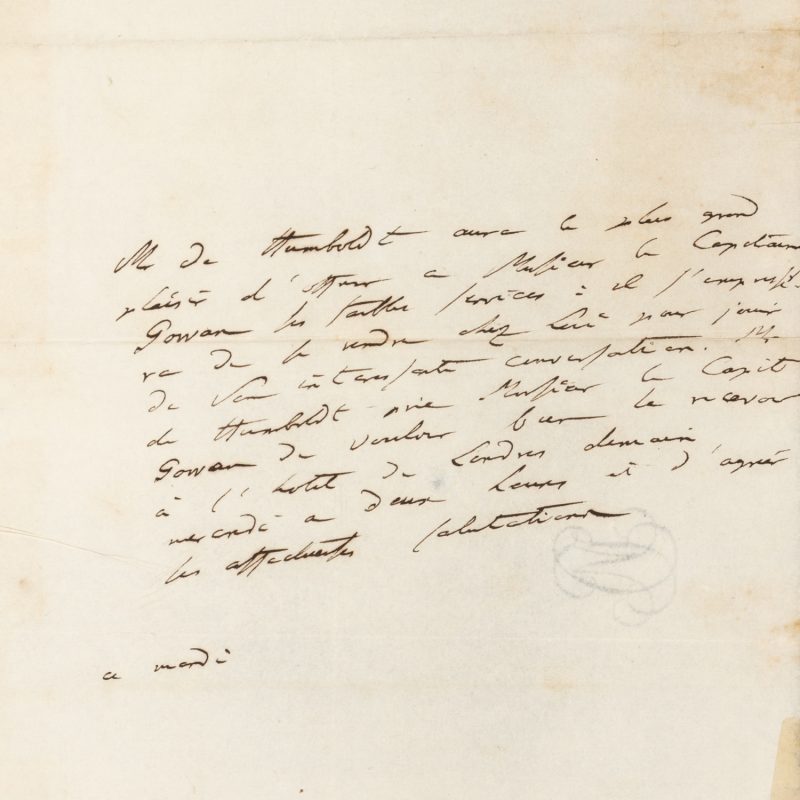 Mr de Humboldt aura le plus grand
plaisir d'offrir a Monsieur le Capitaine
Gowan ses faibles services : il s'empresse-
ra de se rendre chez lui pour jouir
de son interessante conversation. Mr
de Humboldt prie Monsieur le Capit
Gowan de vouloir bien le recevoir
à l'hotel de Londres demain
mercredi a deux heures et d'agréer
les affectueuses salutations
ce mardi